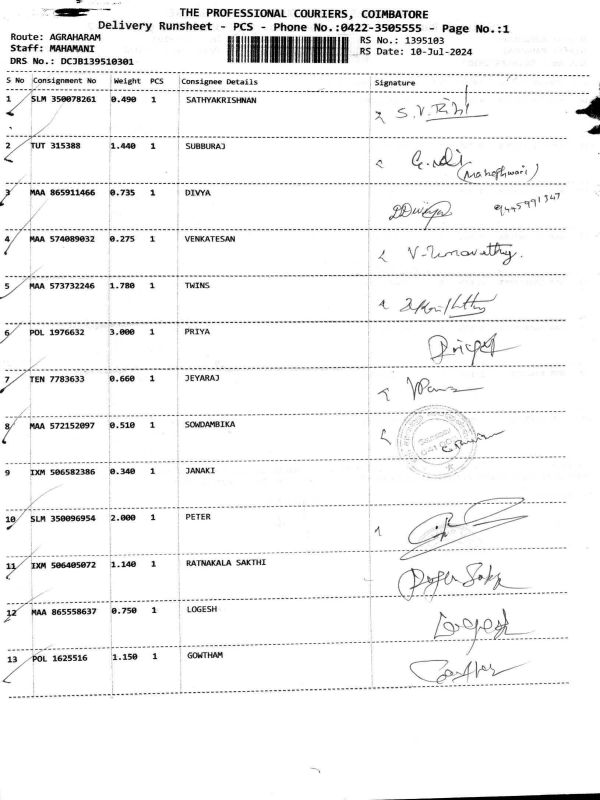 THE PROFESSIONAL COURIERS, COIMBATORE
Delivery Runsheet - PCS - Phone No.:0422-3505555 - Page No.:1
Route: AGRAHARAM RS No.: 1395103
Staff: MAHAMANI RS Date: 10-Jul-2024
DRS No.: DCJB139510301
S No Consignment No Weight PCS Consignee Details Signature
1 SLM 350078261 0.490 1 SATHYAKRISHNAN
2 TUT 315388 1.440 1 SUBBURAJ
(Maheshwari)
3 MAA 865911466 0.735 1 DIVYA DDivya 9445991347
4 MAA 574089032 0.275 1 VENKATESAN
5 MAA 573732246 1.780 1 TWINS
6 POL 1976632 3.000 1 PRIYA
7 TEN 7783633 0.660 1 JEYARAJ
8 MAA 572152097 0.510 1 SOWDAMBIKA
9 IXM 506582386 0.340 1 JANAKI
10 SLM 350096954 2.000 1 PETER
11 IXM 506405072 1.140 1 RATNAKALA SAKTHI
12 MAA 865558637 0.750 1 LOGESH Logesh
13 POL 1625516 1.150 1 GOWTHAM